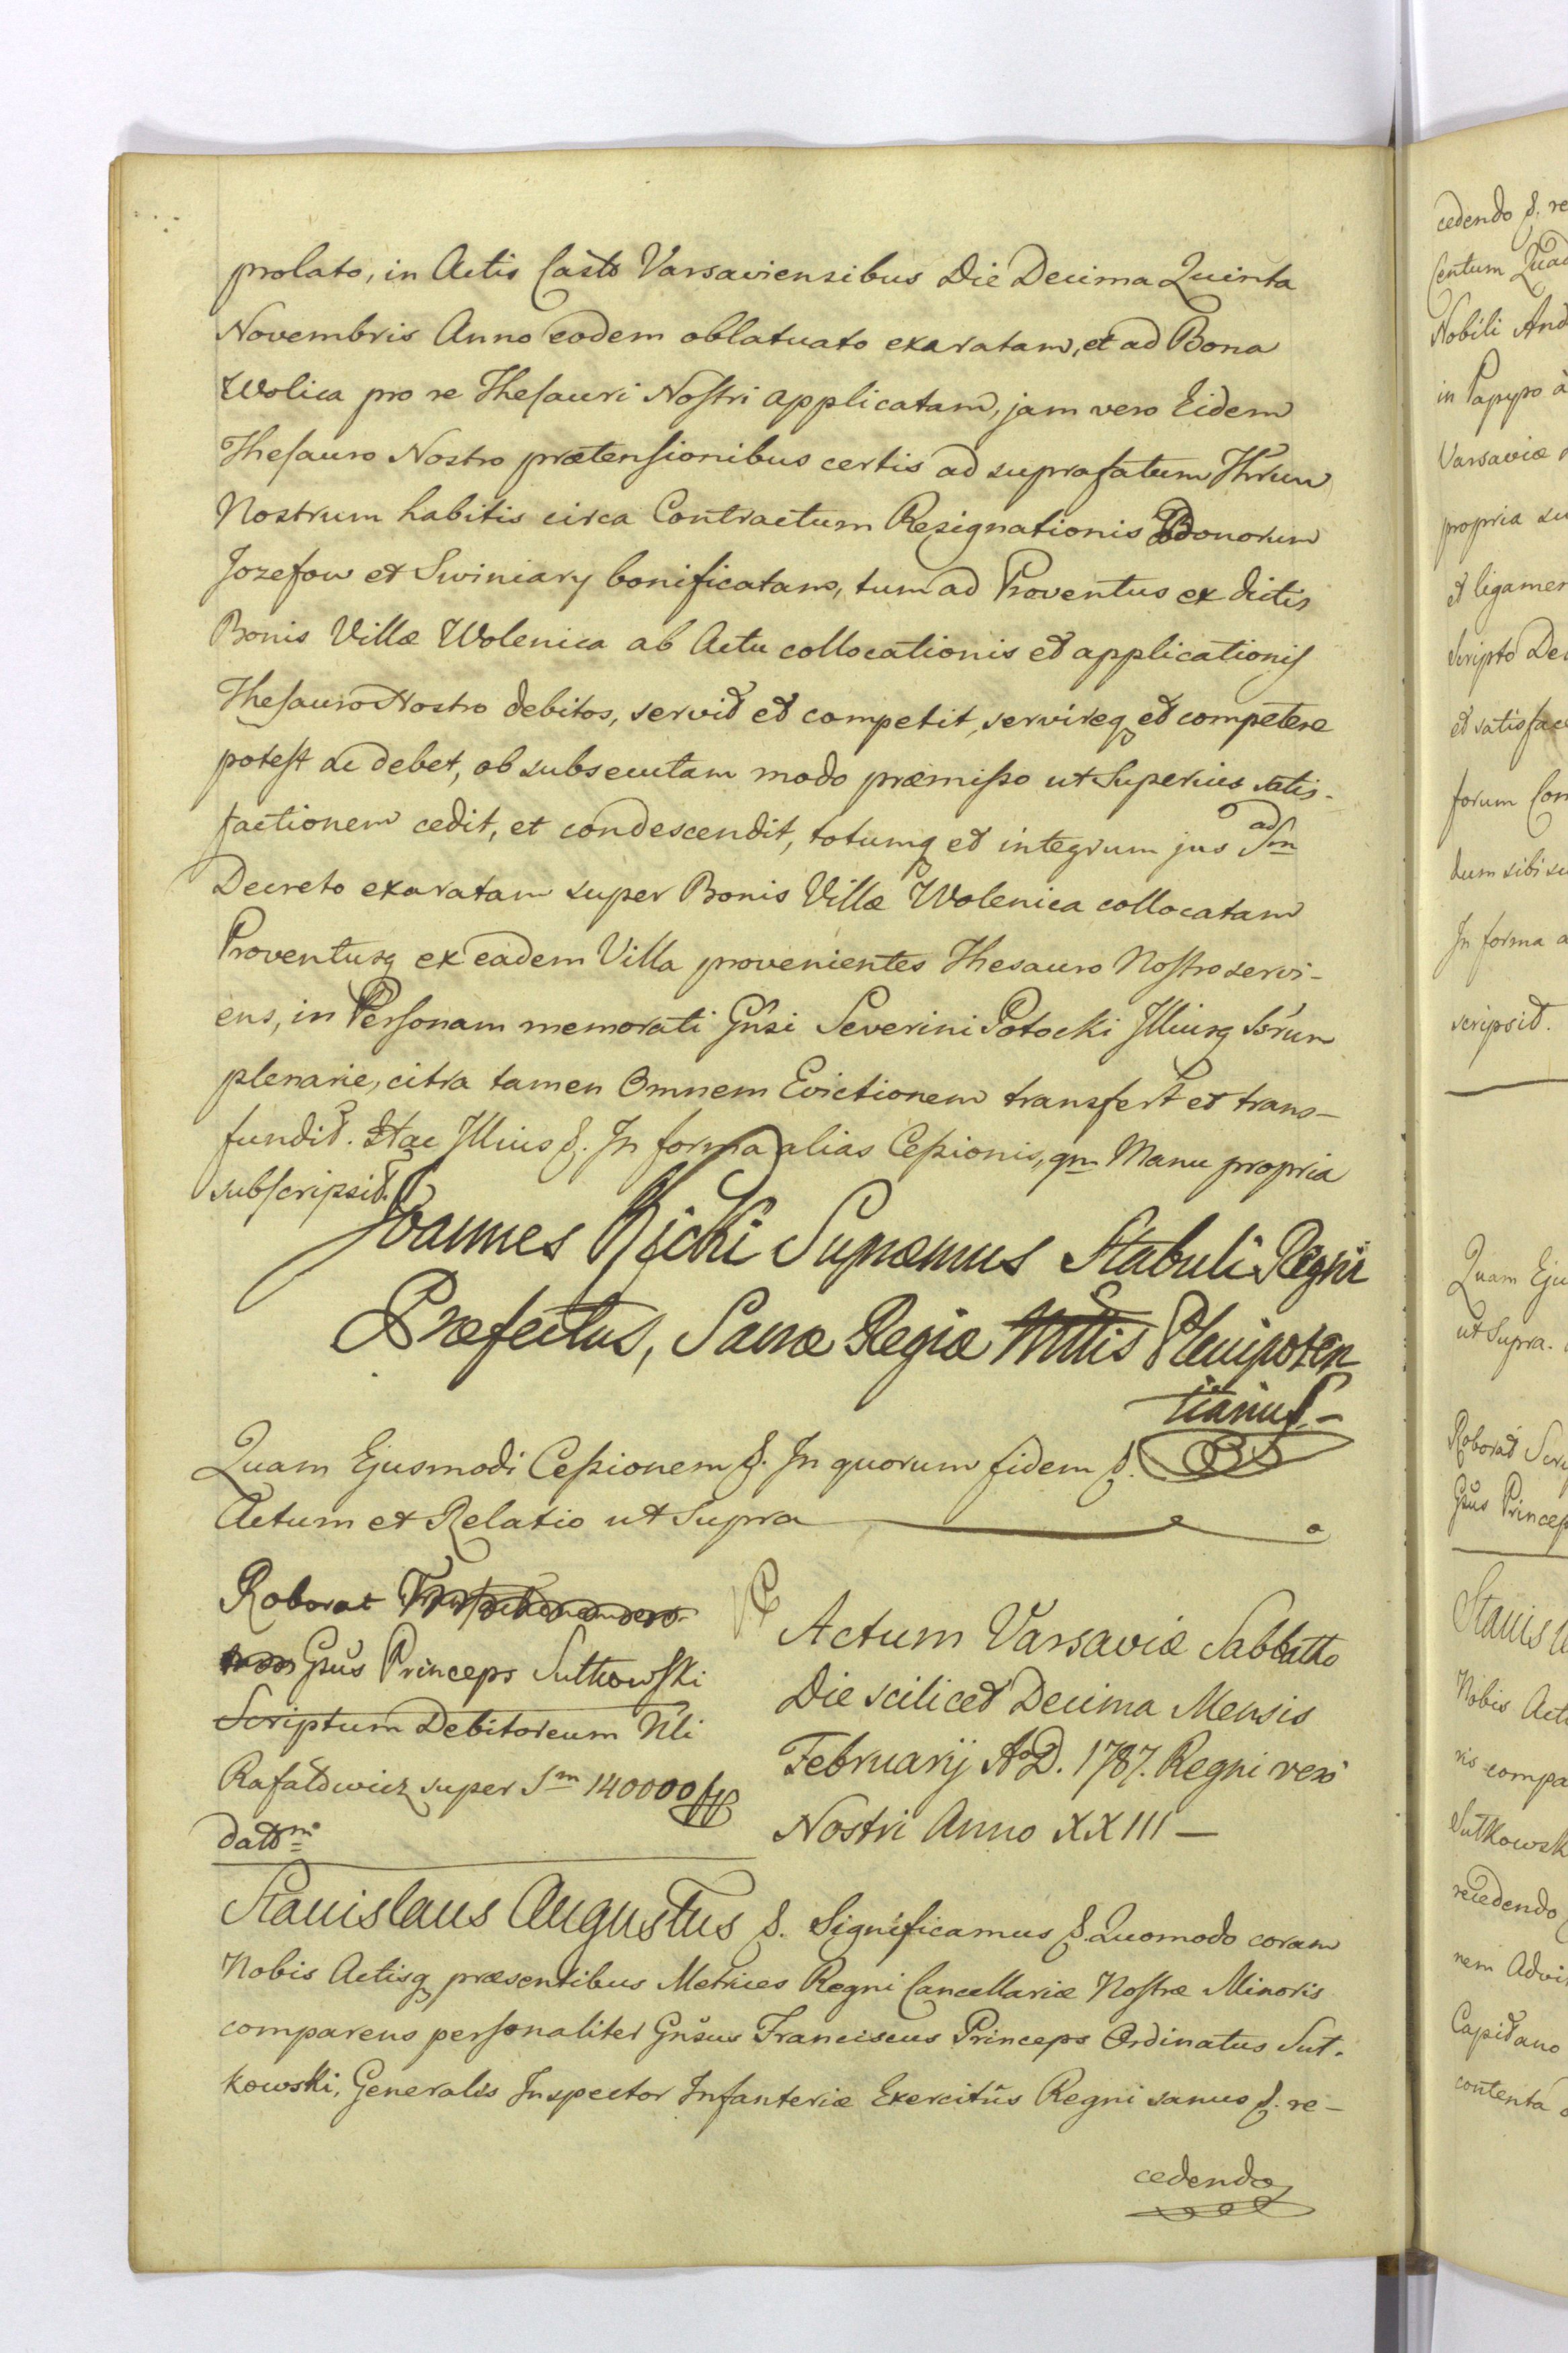 prolato, in Actis Casto Varsaviensibus Die Decima Quinta
Novembris Anno eodem oblatuato exaratam, et ad Bona
Wolica pro re Thesauri Nostri applicatam, jam vero Eidem
Thesauro Nostro prætensionibus certis ad suprafatum Thrum
Nostrum habitis circa Contractum Resignationis Bonorum
Jozefow et Swiniary bonificatam, tum ad Proventus ex dictis
Bonis Villæ Wolenica ab Actu collocationis et applicationis
Thesauro Nostro debitos, servit et competit, servireq et competere
potest ac debet, ob subsecutam modo præmisso ut Superius satis-
factionem cedit, et condescendit, totumq et integrum jus ad Sm
Decreto exaratam super Bonis Villæ Wolenica collocatam
Proventusq ex eadem Villa provenientes Thesauro Nostro servi-
ens, in Personam memorati Gnsi Severini Potocki Illiusq Ssrum
plenarie, citra tamen Omnem Evictionem transfert et trans-
fundit. Itae Illius &. In forma alias Cessionis, qm Manu propria
subscripsit.
Joannes Kicki Supræmus Stabuli Regni
Præfectus, Sacræ Regiæ Mttis Plenipoten
tiarius-
Quam Ejusmodi Cessionem &. In quorum fidem &.
Actum et Relatio ut Supra
Roborat
Gsus Princeps Sułkowski
Scriptum Debitoreum Nli
Rafałowicz super Sm 140000 fl
datt m
Actum Varsaviæ Sabbatho
Die scilicet Decima Mensis
Februarij Ao D. 1787. Regni vero
Nostri Anno XXIII —
Stanislaus Augustus &. Significamus &. Quomodo coram
Nobis Actisq præsentibus Metrices Regni Cancellariæ Nostræ Minoris
comparens personaliter Gnsus Franciscus Princeps Ordinatus Suł-
kowski, Generalis Inspector Infanteriæ Exercitus Regni sanus &. re-
cedendo
cedendo &. re
Centum Quad
Nobili And
in Papyro a
Varsaviæ
propria su
et ligamen
Scripto De
et satisfac
forum Con
dum sibi su
In forma a
scripsit.
Quam Eju
ut Supra.
Roborat Scri
Gsus Princep
Stanisl
Nobis Act
ris compa
Sułkowsk
recedendo
nem Advi
Capitano
contenta